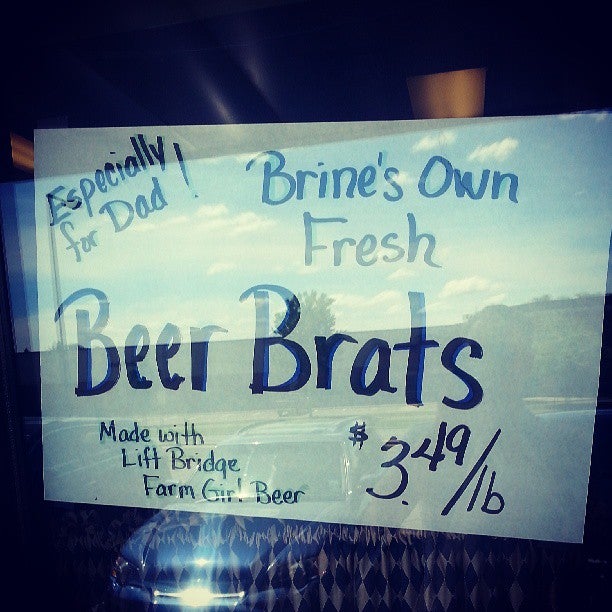 Especially
for Dad!
Brine's Own
Fresh
Beer Brats
Made with
Lift Bridge
Farm Girl Beer
$3.49/lb